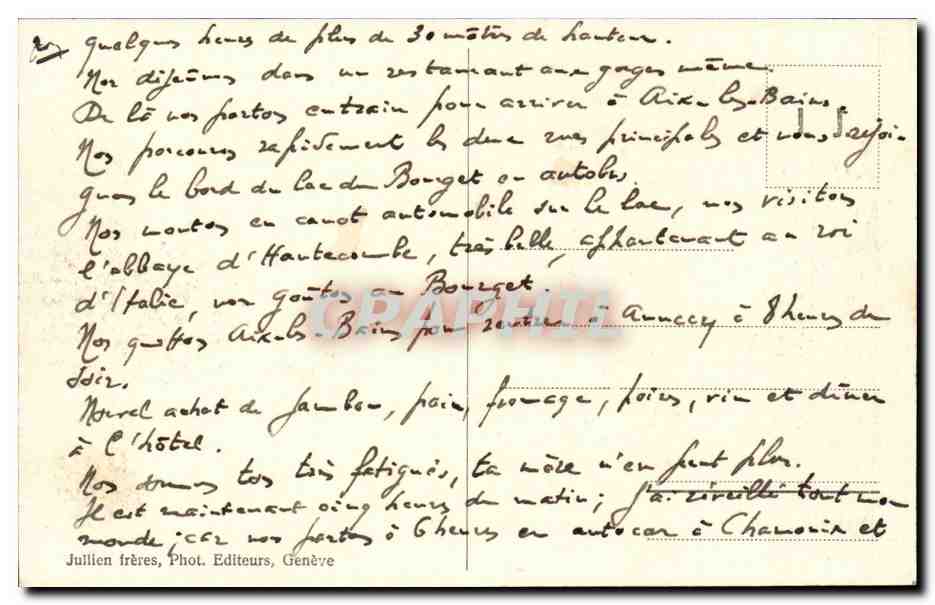 quelques heures de plus de 30 mètres de hauteur.
Nos déjeûnons dans un restaurant aux gorges même.
De là nos partons en train pour arriver à Aix-les-Bains.
Nos parcourons rapidement les deux rues principales et nous rejoi-
gnons le bord du lac du Bourget en autobus.
Nos montons en canot automobile sur le lac, nos visitons
l'abbaye d'Hautecombe, très belle, appartenant au roi
d'Italie, nos goûtons au Bourget.
Nos quittons Aix-les-Bains pour rentrer à Annecy à 8 heures du
soir.
Nouvel achat de jambon, pain, fromage, poires, vin et dîner
à l'hôtel.
Nos sommes tos très fatigués, ta mère n'en peut plus.
Il est maintenant cinq heures du matin; j'ai réveillé tout mon
monde; car nos partons à 6 heures en autocar à Chamonix et
Jullien frères, Phot. Editeurs, Genève
CPAPHIL